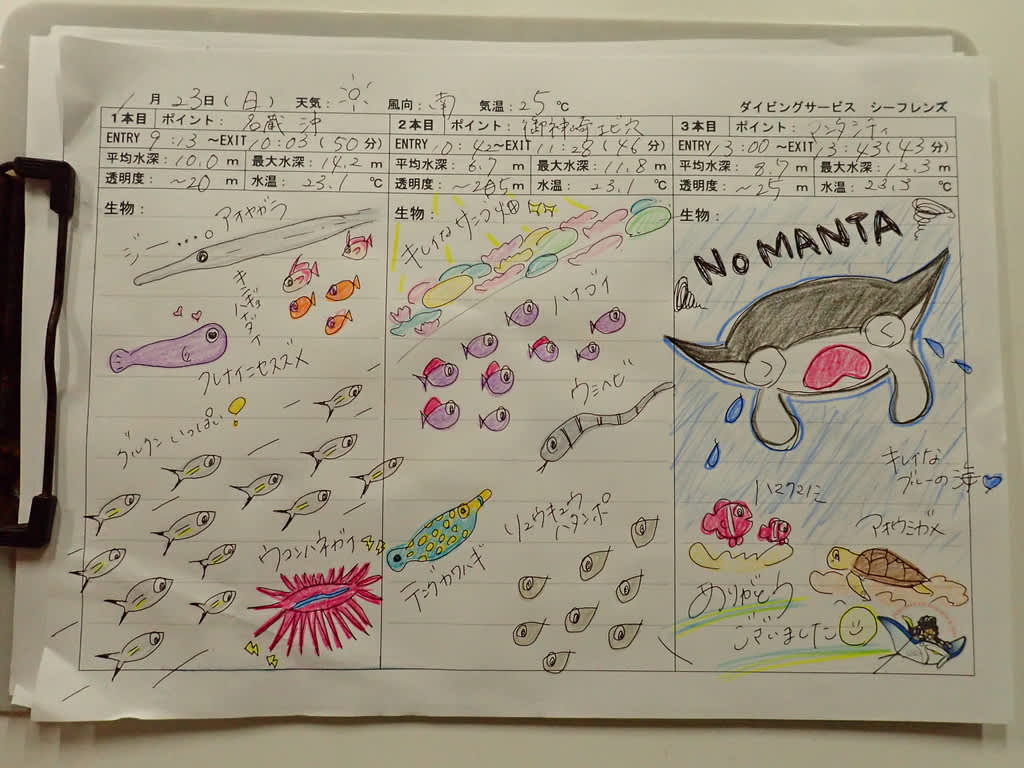 1月23日(日) 天気: 風向:南 気温:25℃ ダイビングサービス シーフレンズ
1本目 ポイント:名蔵沖
ENTRY 9:13 ~EXIT 10:03 (50分)
平均水深:10.0m 最大水深:14.2m
透明度:~20m 水温:23.1℃
生物:
ジー....。
アオヤガラ
キンギョハナダイ
クレナイニセスズメ
グルクンいっぱい
ウコンハネガイ
2本目 ポイント:御神崎エビ穴
ENTRY 10:42~EXIT 11:28 (46分)
平均水深:6.7m 最大水深:11.8m
透明度: m 水温:23.1℃
生物:
キレイなサンゴ畑
ハナゴイ
ウミヘビ
リュウキュウ
ハタンポ
テングカワハギ
3本目 ポイント:マンタシティ
ENTRY 13:00~EXIT 13:43 (43分)
平均水深:8.7m 最大水深:12.3m
透明度:~25m 水温:23.3℃
生物:
NO MANTA
キレイな
ブルーの海
ハマクマノミ
アオウミガメ
ありがとう
ございました